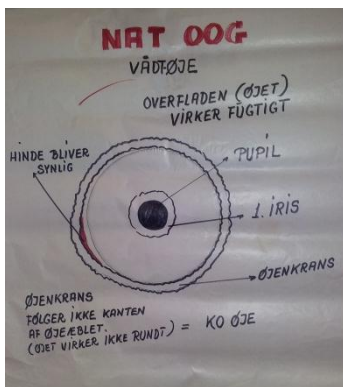 NAT OOG
VÅDTØJE
OVERFLADEN (ØJET)
VIRKER FUGTIGT
HINDE BLIVER
SYNLIG
PUPIL
1. IRIS
ØJENKRANS
ØJENKRANS
FØLGER IKKE KANTEN
AF ØJEÆBLET.
(ØJET VIRKER IKKE RUNDT) = KO ØJE